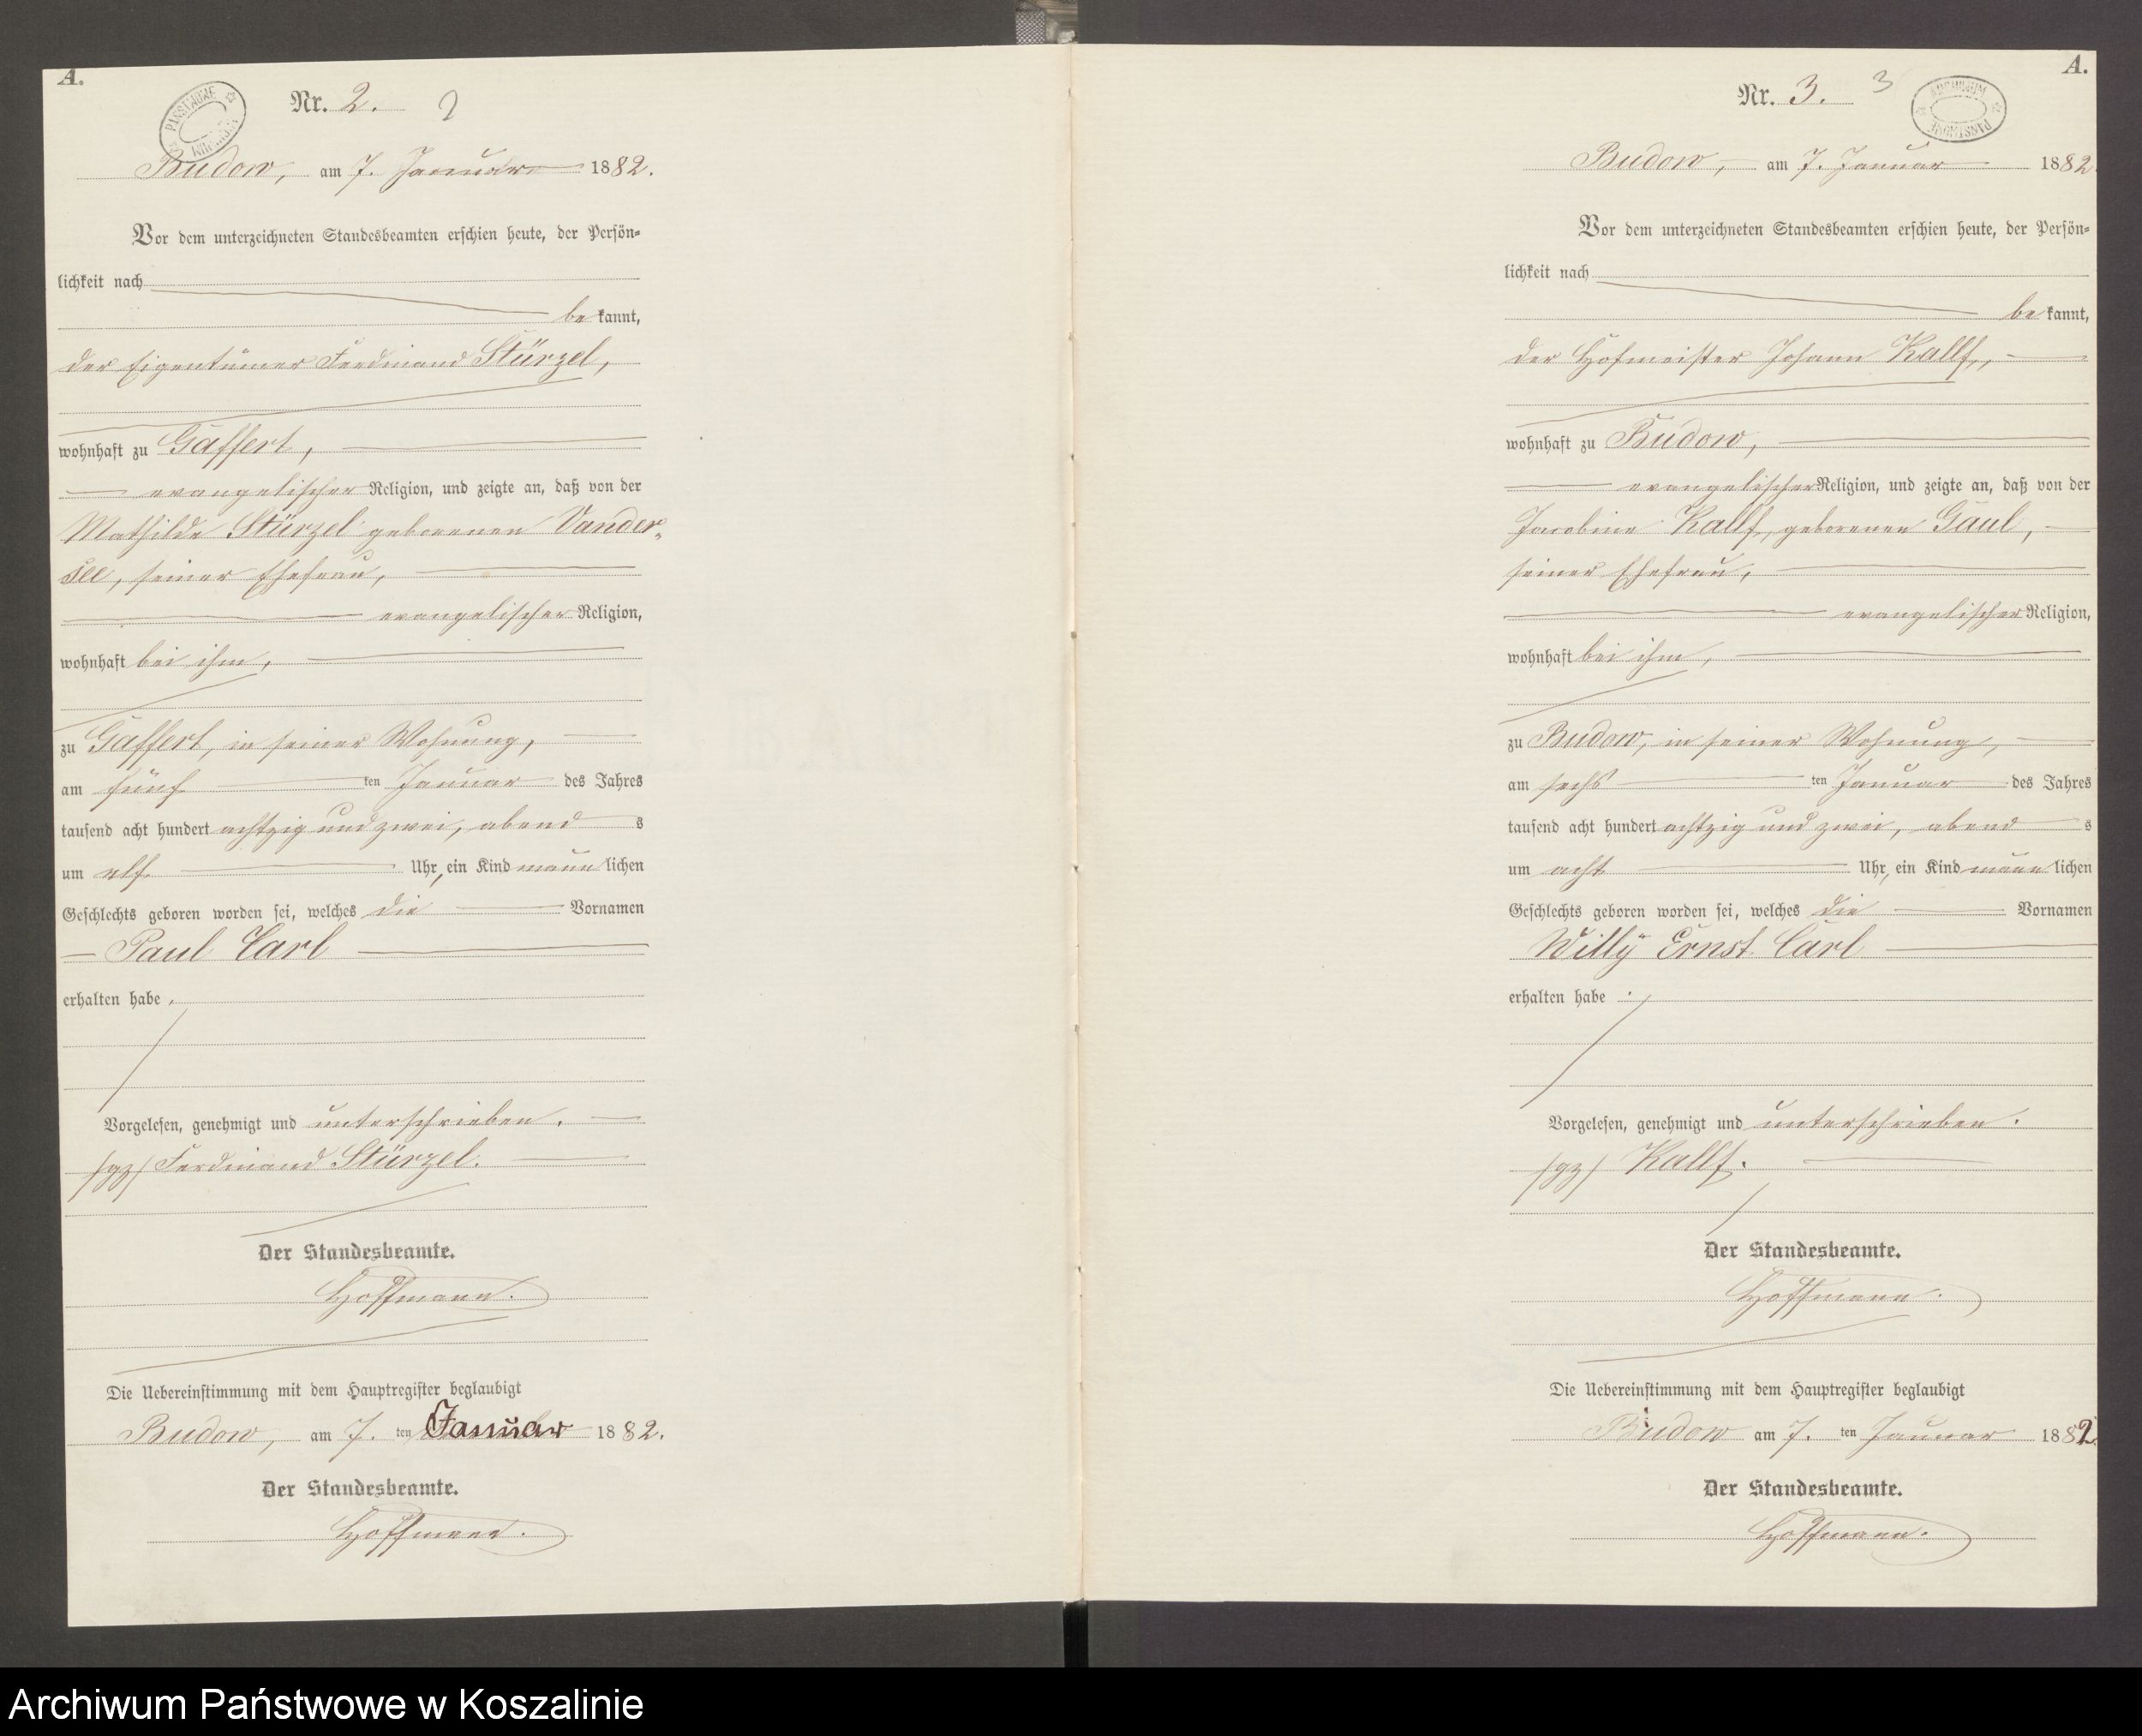 A.
Nr. 2. 2
Budow, am 7. Januar 1882.
Vor dem unterzeichneten Standesbeamten erschien heute, der Persön-
lichkeit nach
be kannt,
der Eigentümer Ferdinand Stürzel,
wohnhaft zu Gaffert,
evangelischer Religion, und zeigte an, daß von der
Mathilde Stürzel geborenen Vander-
see, seiner Ehefrau,
evangelischer Religion,
wohnhaft bei ihm,
zu Gaffert, in seiner Wohnung,
am fünf ten Januar des Jahres
tausend acht hundert achtzig und zwei, abend s
um elf Uhr, ein Kind männ lichen
Geschlechts geboren worden sei, welches die Vornamen
Paul Carl
erhalten habe.
Vorgelesen, genehmigt und unterschrieben.
/gz/ Ferdinand Stürzel.
Der Standesbeamte.
Hoffmann.
Die Uebereinstimmung mit dem Hauptregister beglaubigt
Budow, am 7. ten Januar 1882.
Der Standesbeamte.
Hoffmann.
A.
Nr. 3. 3
ARCHIWUM PAŃSTWOWE
Budow, am 7. Januar 1882
Vor dem unterzeichneten Standesbeamten erschien heute, der Persön-
lichkeit nach
be kannt,
der Hofmeister Johann Kallf,
wohnhaft zu Budow,
evangelischer Religion, und zeigte an, daß von der
Jacobine Kallf, geborenen Gaul,
seiner Ehefrau,
evangelischer Religion,
wohnhaft bei ihm,
zu Budow, in seiner Wohnung,
am sechs ten Januar des Jahres
tausend acht hundert achtzig und zwei, abend s
um acht Uhr, ein Kind männ lichen
Geschlechts geboren worden sei, welches die Vornamen
Willy Ernst Carl
erhalten habe.
Vorgelesen, genehmigt und unterschrieben.
/gz/ Kallf.
Der Standesbeamte.
Hoffmann.
Die Uebereinstimmung mit dem Hauptregister beglaubigt
Budow am 7. ten Januar 1882
Der Standesbeamte.
Hoffmann.
Archiwum Państwowe w Koszalinie